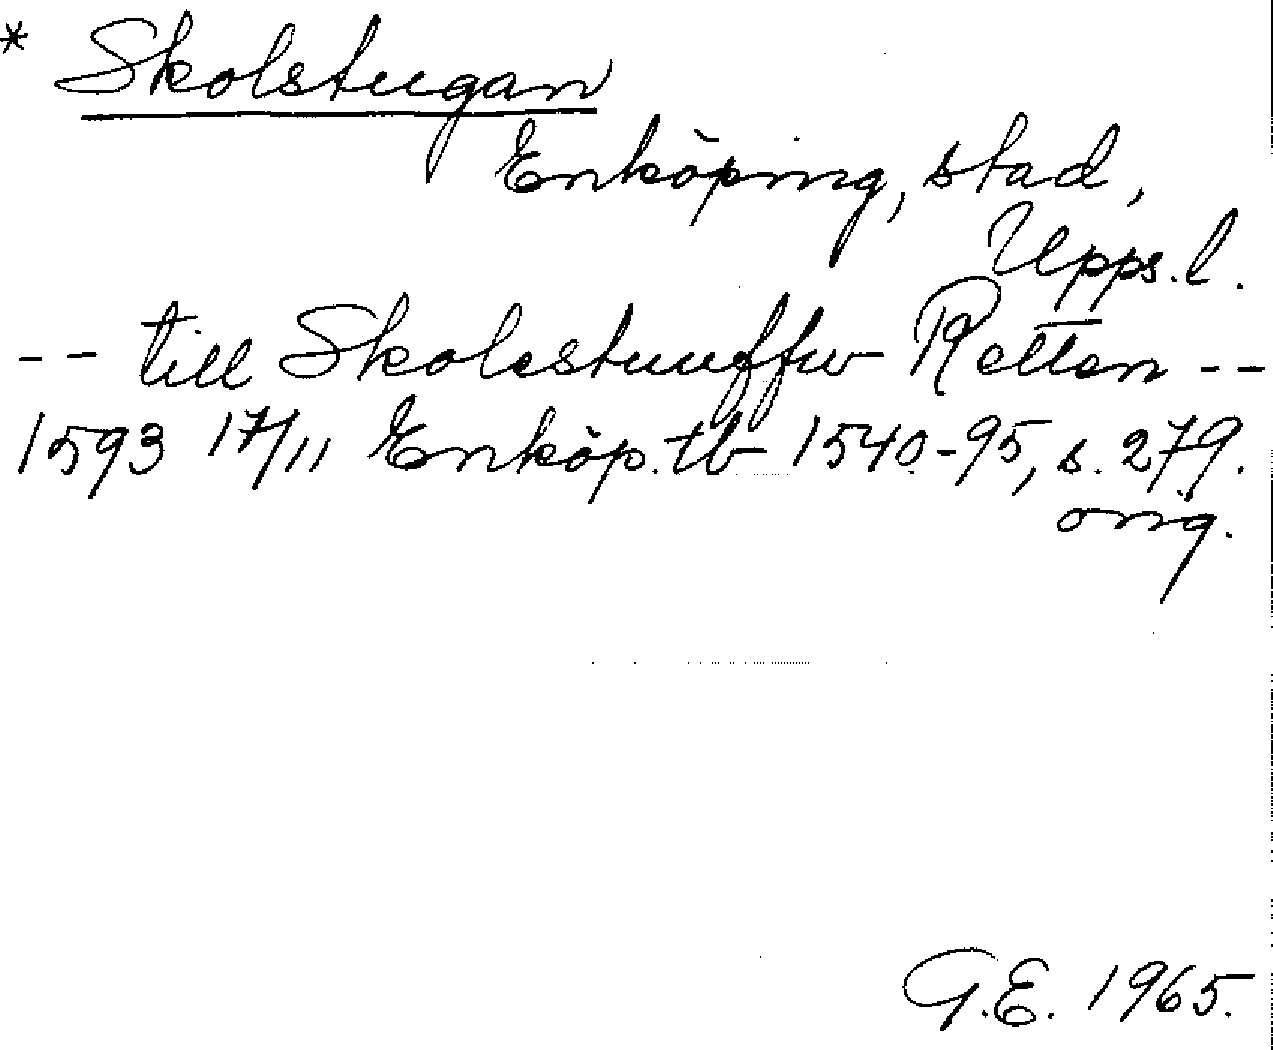 * Skolstugan
Enköping, stad,
Upps. l.
-- till Skolestuuffw Retten --
1593 17/11 Enköp. tb 1540-95, s. 279.
orig.
G.E. 1965.